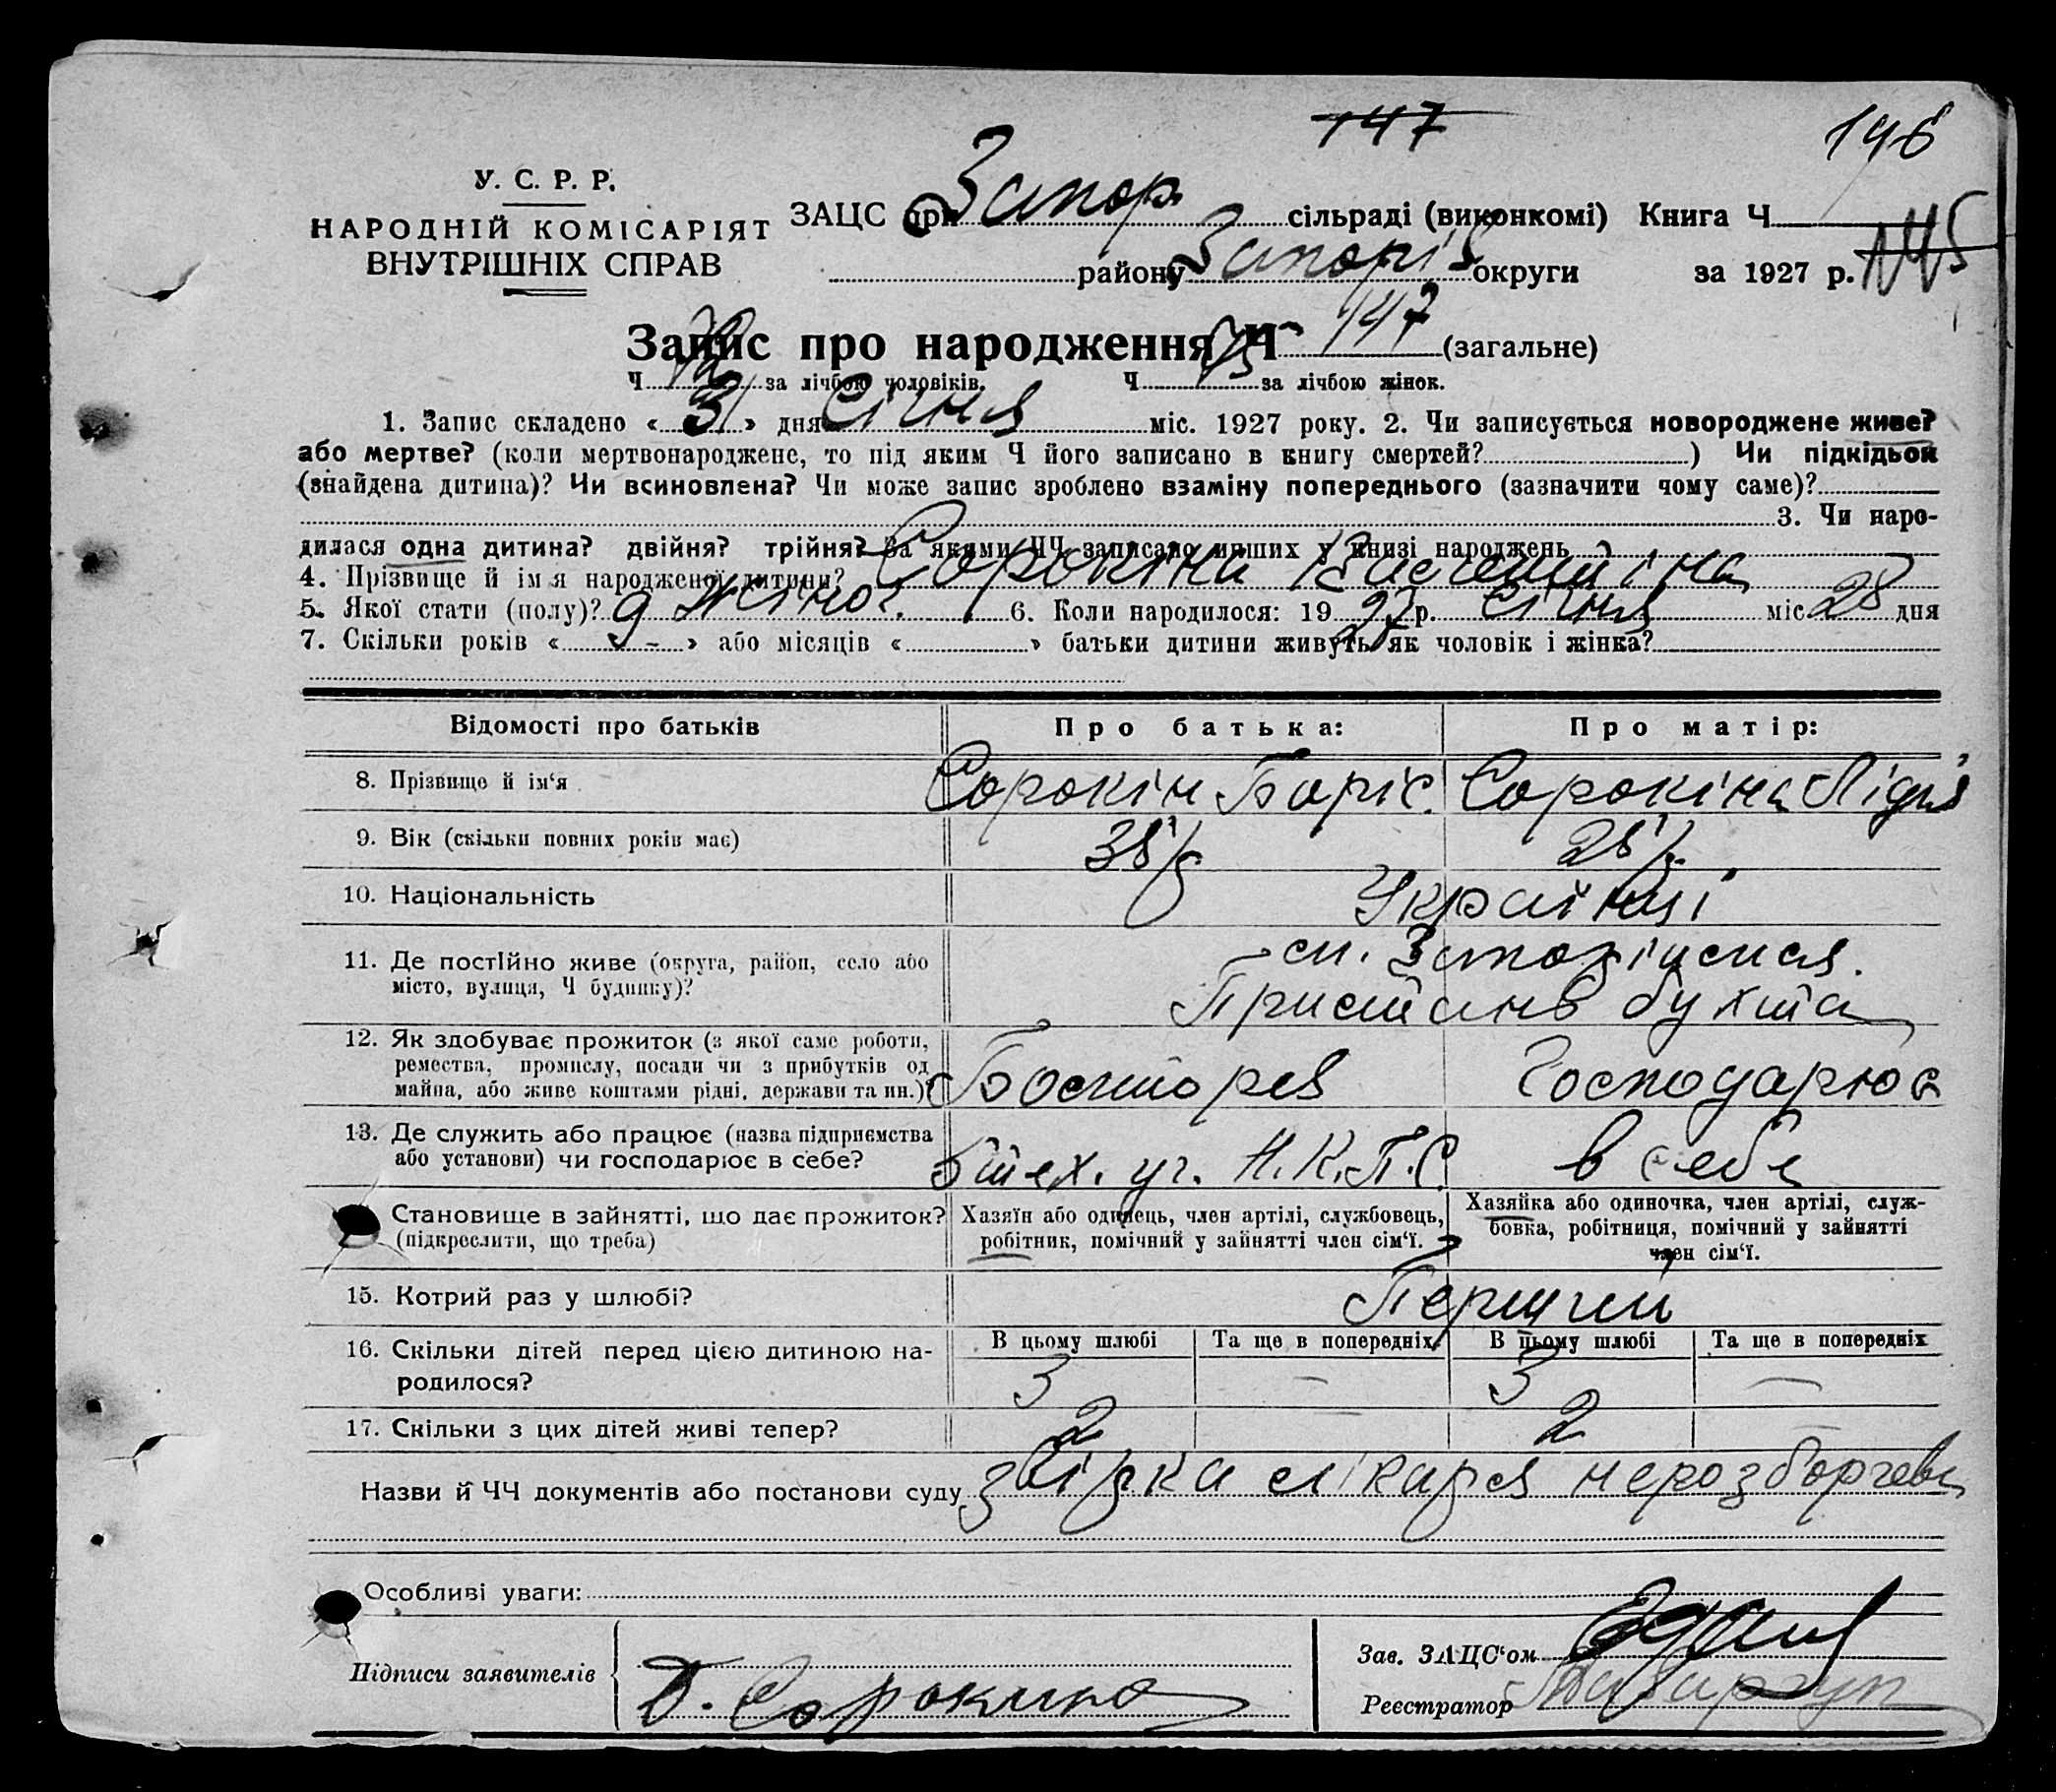 147
146
У. С. Р. Р.
НАРОДНІЙ КОМІСАРІЯТ
ВНУТРІШНІХ СПРАВ
ЗАЦС при Запор сільраді (виконкомі) Книга Ч
району Запоріз округи за 1927 р. 145
Запис про народження Ч 147 (загальне)
Ч за лічбою чоловіків. Ч 75 за лічбою жінок.
1. Запис складено « 31 » дня січня міс. 1927 року. 2. Чи записується новороджене живе?
або мертве? (коли мертвонароджене, то під яким Ч його записано в книгу смертей?) Чи підкідьок
(знайдена дитина)? Чи всиновлена? Чи може запис зроблено взаміну попереднього (зазначити чому саме)?
3. Чи наро-
дилася одна дитина? двійня? трійня? За якими ЧЧ записано инших у книзі народжень
4. Прізвище й ім'я народженої дитини? Сорокіна Валентина
5. Якої стати (полу)? Жіноч. 6. Коли народилося: 1927 р. січня міс. 28 дня
7. Скільки років « 9 - » або місяців « » батьки дитини живуть як чоловік і жінка?
Відомості про батьків Про батька: Про матір:
8. Прізвище й ім'я Сорокін Боріс. Сорокіна Лідія
9. Вік (скільки повних років має) 38 28
10. Національність Українці
11. Де постійно живе (округа, район, село або
місто, вулиця, Ч будинку)?
Пристань бухта
12. Як здобуває прожиток (з якої саме роботи,
ремества, промислу, посади чи з прибутків од
майна, або живе коштами рідні, держави та ин.)?
Господарює
13. Де служить або працює (назва підприємства
або установи) чи господарює в себе?
тех. уч. Н.К.П.С. в себе
Становище в зайнятті, що дає прожиток?
(підкреслити, що треба)
Хазяїн або одинець, член артілі, службовець,
робітник, помічний у зайнятті член сім'ї.
Хазяйка або одиночка, член артілі, служ-
бовка, робітниця, помічний у зайнятті
член сім'ї.
15. Котрий раз у шлюбі? Перший
В цьому шлюбі Та ще в попередніх В цьому шлюбі Та ще в попередніх
16. Скільки дітей перед цією дитиною на-
родилося?
3 — 3 —
17. Скільки з цих дітей живі тепер? 2 — 2
Назви й ЧЧ документів або постанови суду звірка лікаря нерозборчева
Особливі уваги:
Підписи заявителів Сорокина
Зав. ЗАЦС'ом
Реєстратор